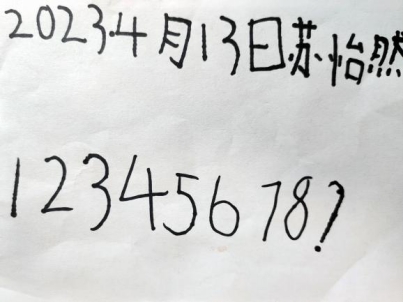 20234月13日苏怡然
12345678?